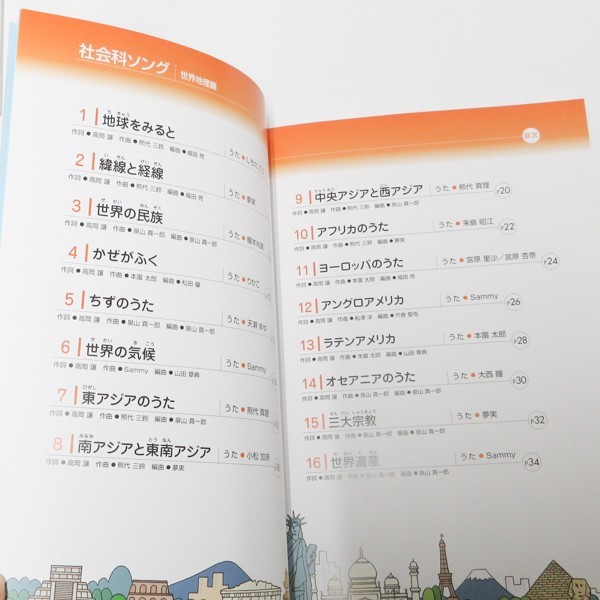 社会科ソング 世界地理編
1 地球をみると うた●
作詞●高岡 譲 作曲●熊代 三鈴 編曲●福田 亮
2 緯線と経線 うた●夢実
作詞●高岡 譲 作曲●熊代 三鈴 編曲●福田 亮
3 世界の民族 うた●
作詞●高岡 譲 作曲●泉山 真一郎 編曲●泉山 真一郎
4 かぜがふく うた●りかこ
作詞●高岡 譲 作曲●本園 太郎 編曲●松田 肇
5 ちずのうた うた●天野 まや
作詞●高岡 譲 作曲●泉山 真一郎 編曲●泉山 真一郎
6 世界の気候 うた●Sammy
作詞●高岡 譲 作曲●Sammy 編曲●山田 章典
7 東アジアのうた うた●熊代 真理
作詞●高岡 譲 作曲●熊代 三鈴 編曲●泉山 真一郎
8 南アジアと東南アジア うた●小松
作詞●高岡 譲 作曲●熊代 三鈴 編曲●夢実
目次
9 中央アジアと西アジア うた●熊代 真理 P20
作詞●高岡 譲 作曲●熊代 三鈴 編曲●泉山 真一郎
10 アフリカのうた うた●来島 昭江 P22
作詞●高岡 譲 作曲●熊代 三鈴 編曲●夢実
11 ヨーロッパのうた うた●宮原 里沙／宮原 杏奈 P24
作詞●高岡 譲 作曲●本園 太郎 編曲●福田 亮
12 アングロアメリカ うた●Sammy P26
作詞●高岡 譲 作曲●船津 洋 編曲●
13 ラテンアメリカ うた●本園 太郎 P28
作詞●高岡 譲 作曲●本園 太郎 編曲●山田 章典
14 オセアニアのうた うた●大西 瞳 P30
作詞●高岡 譲 作曲●泉山 真一郎 編曲●泉山 真一郎
15 三大宗教 うた●夢実 P32
作詞●高岡 譲 作曲●泉山 真一郎 編曲●泉山 真一郎
16 世界遺産 うた●Sammy P34
作詞●高岡 譲 作曲●泉山 真一郎 編曲●泉山 真一郎